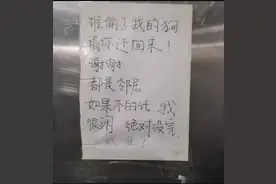 谁偷了我的狗
请你还回来！
谢谢
都是邻居
如果不的话 我
很闲 绝对没完
！